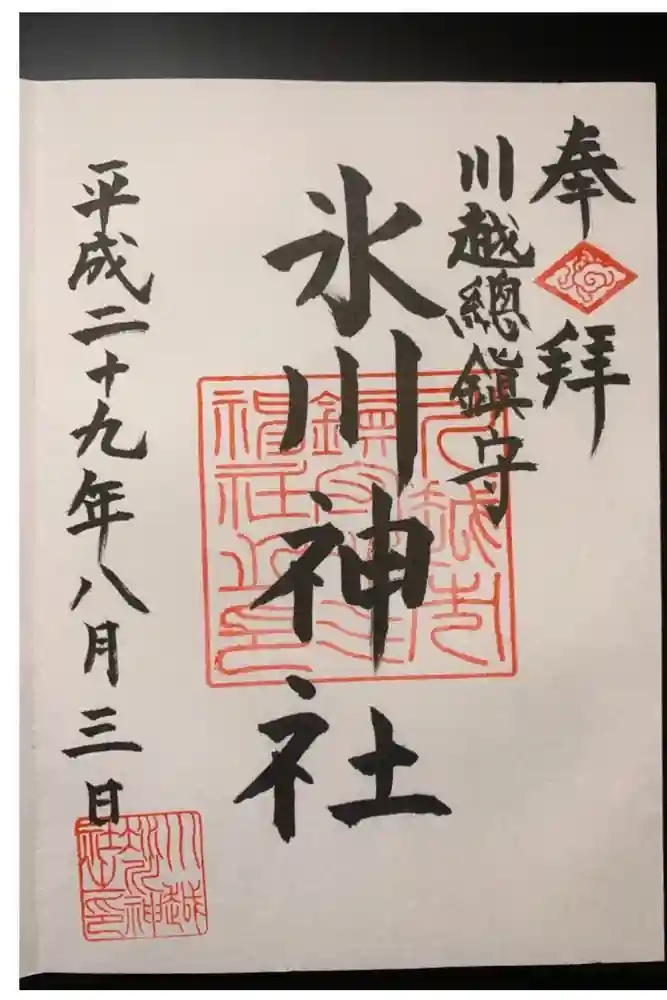 奉拝
川越總鎮守
氷川神社
平成二十九年八月三日